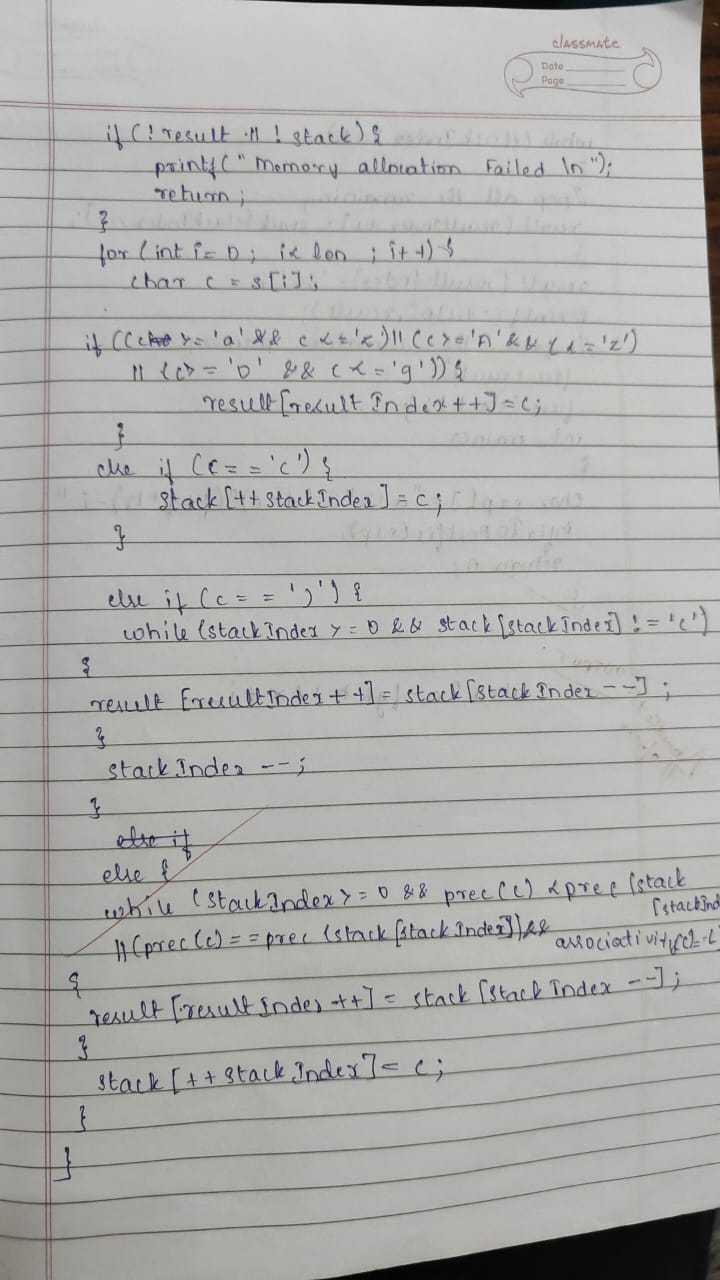 classmate
Date
Page
if (! result || ! stack) {
printf (" Memory allocation Failed \n");
return ;
}
for (int i= 0 ; i< len ; i++) {
char c = s[i];
if ((c >= 'a' && c <= 'z') || (c >= 'A' && c <= 'z')
|| (c >= '0' && c <= '9')) {
result [result Index ++] = c;
}
else if (c = = '(') {
stack [++ stack Index ] = c ;
}
else if (c = = ')') {
while (stack Index >= 0 && stack [stack Index] ! = '(')
{
result [resultIndex + +] = stack [stack Index --] ;
}
stack Index -- ;
}
else if
else {
while (stackIndex >= 0 && prec (c) < prec (stack
[stackInd
|| (prec (c) = = prec (stack [stack Index]) &&
associativity(c)= =L
{
result [result Index ++] = stack [stack Index --] ;
}
stack [++ stack Index] = c ;
}
}